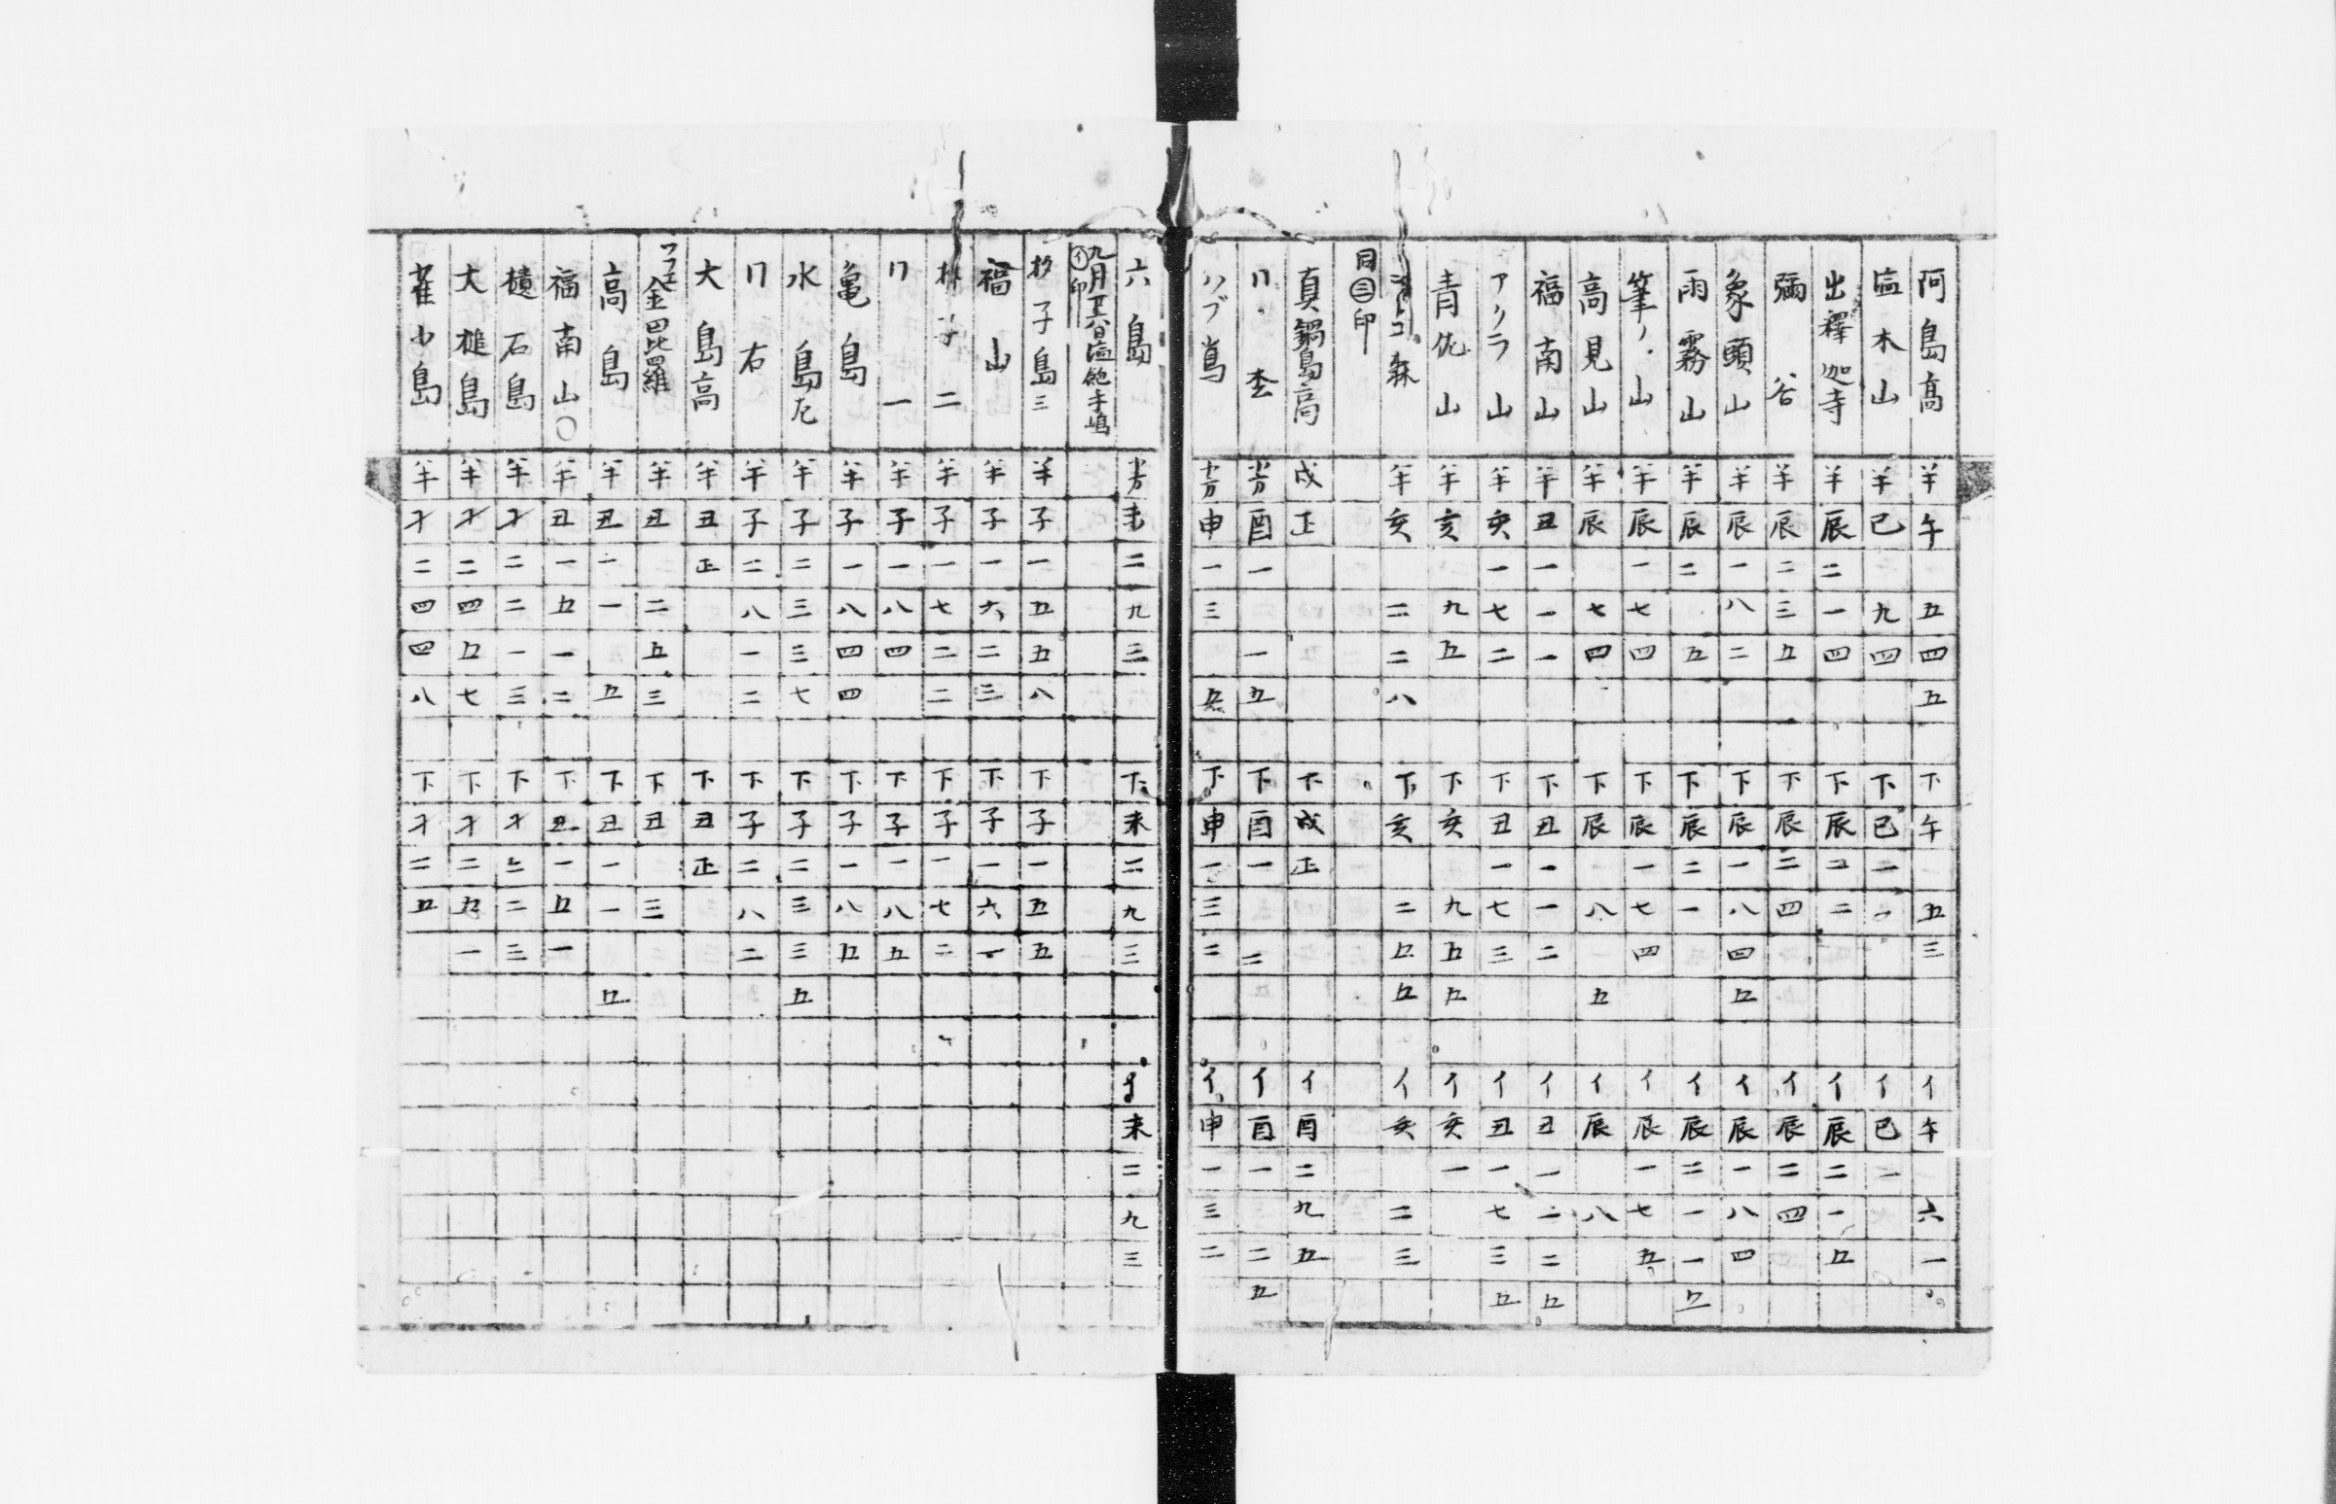 阿島高 半 午 五 四 五 下 午 五 三 イ 午 六 一
塩木山 半 巳 九 四 下 巳 一 一 イ 巳 一
出釋迦寺 半 辰 二 一 四 下 辰 二 二 イ 辰 二 一 五
彌谷 半 辰 二 三 五 下 辰 二 四 イ 辰 二 四
象頭山 半 辰 一 八 二 下 辰 一 八 四 五 イ 辰 一 八 四
雨霧山 半 辰 二 五 下 辰 二 一 イ 辰 二 一 一 五
筆ノ山 半 辰 一 七 四 下 辰 一 七 四 イ 辰 一 七 五
高見山 半 辰 七 四 下 辰 八 五 イ 辰 八
福南山 半 丑 一 一 一 下 丑 一 一 二 イ 丑 一 二 二 五
アクラ山 半 一 七 二 下 丑 一 七 三 イ 丑 一 七 三 五
青佐山 半 亥 九 五 下 亥 九 五 五 イ 亥 一
森 半 亥 二 二 八 下 亥 二 五 五 イ 亥 二 三
同㊂印
真鍋島高 戌 正 下 戌 正 イ 酉 二 九 五
〃 酉 一 一 五 下 酉 一 二 イ 酉 一 二 五
ハブ島 申 一 三 下 申 一 三 二 イ 申 一 三 二
六島 未 二 九 三 下 未 二 九 三 イ 未 二 九 三
九月廿六日塩飽手嶋
㋑印
杓子島三 半 子 一 五 五 八 下 子 一 五 五
福山 半 子 一 六 二 三 下 子 一 六 一
杓子二 半 子 一 七 二 二 下 子 一 七 二
〃一 半 子 一 八 四 下 子 一 八 五
亀島 半 子 一 八 四 四 下 子 一 八 五
水島左 半 子 二 三 三 七 下 子 二 三 三 五
〃右 半 子 二 八 一 二 下 子 二 八 二
大島高 半 丑 正 下 丑 正
金毘羅 半 丑 二 五 三 下 丑 三
高島 半 丑 一 一 五 下 丑 一 一 五
福南山〇 半 丑 一 五 一 二 下 丑 一 五 一
櫃石島 半 才 二 二 一 三 下 才 二 二 三
大槌島 半 才 二 四 五 七 下 才 二 五 一
雀小島 半 才 二 四 四 八 下 才 二 五